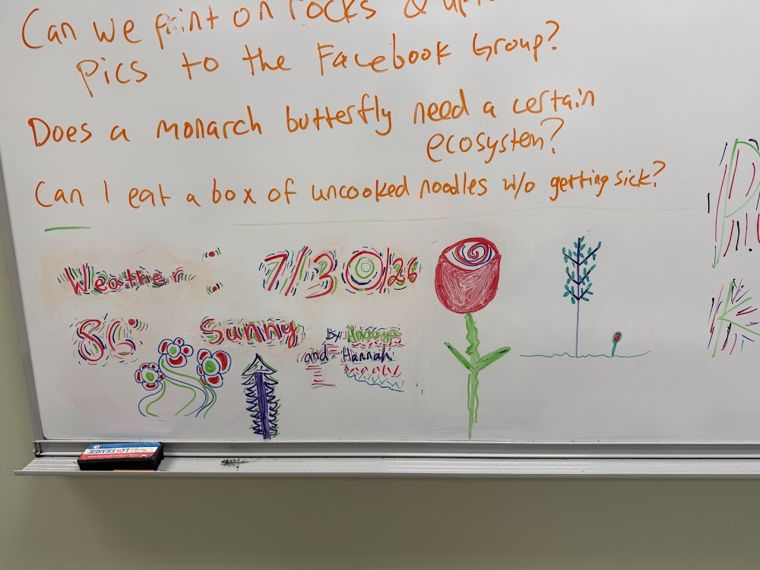 Can we paint on rocks &
pics to the Facebook Group?
Does a monarch butterfly need a certain
ecosystem?
Can I eat a box of uncooked noodles w/o getting sick?
Weather: 7/30/26
Sunny
By:
and Hannah